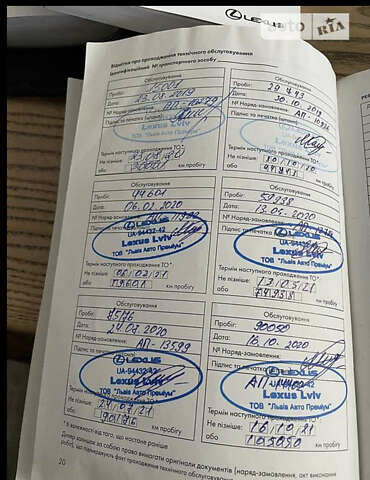 LEXUS
auto RIA
Відмітки про проходження технічного обслуговування
Ідентифікаційний № транспортного засобу
Обслуговування
Пробіг: 15001
Дата: 23.08.2019
№ Наряд-замовлення: АП-
Підпис та печатка
Lexus Lviv
Термін наступного проходження ТО*
Не пізніше:
або км пробігу
Обслуговування
Пробіг: 29 793
Дата: 30.10.2019
№ Наряд-замовлення: АП-
Підпис та печатка
Lexus Lviv
Термін наступного проходження ТО*
Не пізніше:
або км пробігу
Обслуговування
Пробіг: 44601
Дата: 06.02.2020
№ Наряд-замовлення:
Підпис та печатка
LEXUS
UA-94432-42
Lexus Lviv
ТОВ "Львів Авто Преміум"
Термін наступного проходження ТО*
Не пізніше: 06.02.21
або 59601 км пробігу
Обслуговування
Пробіг: 59938
Дата: 13.05.2020
№ Наряд-замовлення:
Підпис та печатка
LEXUS
UA-94432-42
Lexus Lviv
ТОВ "Львів Авто Преміум"
Термін наступного проходження ТО*
Не пізніше: 13.05.21
або 74938 км пробігу
Обслуговування
Пробіг:
Дата: 24.07.2020
№ Наряд-замовлення: АП-13599
Підпис та печатка
LEXUS
UA-94432-42
Lexus Lviv
ТОВ "Львів Авто Преміум"
Термін наступного проходження ТО*
Не пізніше: 24.07.21
або км пробігу
Обслуговування
Пробіг: 90050
Дата: 16.10.2020
№ Наряд-замовлення:
Підпис та печатка
LEXUS
UA-94432-42
Lexus Lviv
ТОВ "Львів Авто Преміум"
Термін наступного проходження ТО*
Не пізніше: 16.10.21
або 105050 км пробігу
* В залежності від того, що настане раніше
Дилер залишає за собою право вимагати оригінали документів (наряд-замовлення, акт виконаних
робіт), що підтверджують факт проходження технічного обслуговування
20